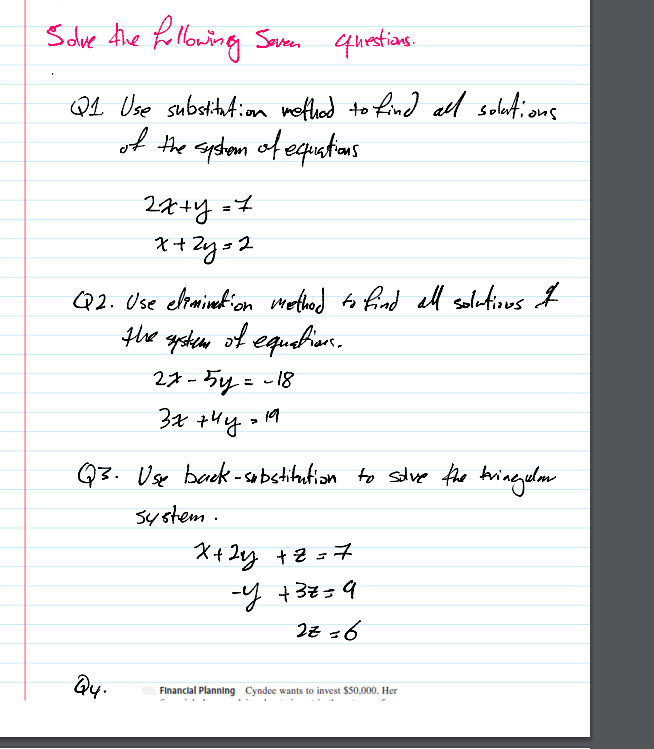 Solve the following Seven questions.
Q1 Use substitution method to find all solutions
of the system of equations
2x+y = 7
x + 2y = 2
Q2. Use elimination method to find all solutions of
the system of equations.
2x - 5y = -18
3x + 4y = 19
Q3. Use back-substitution to solve the triangular
system.
x + 2y + z = 7
-y + 3z = 9
2z = 6
Q4. Financial Planning Cyndee wants to invest $50,000. Her